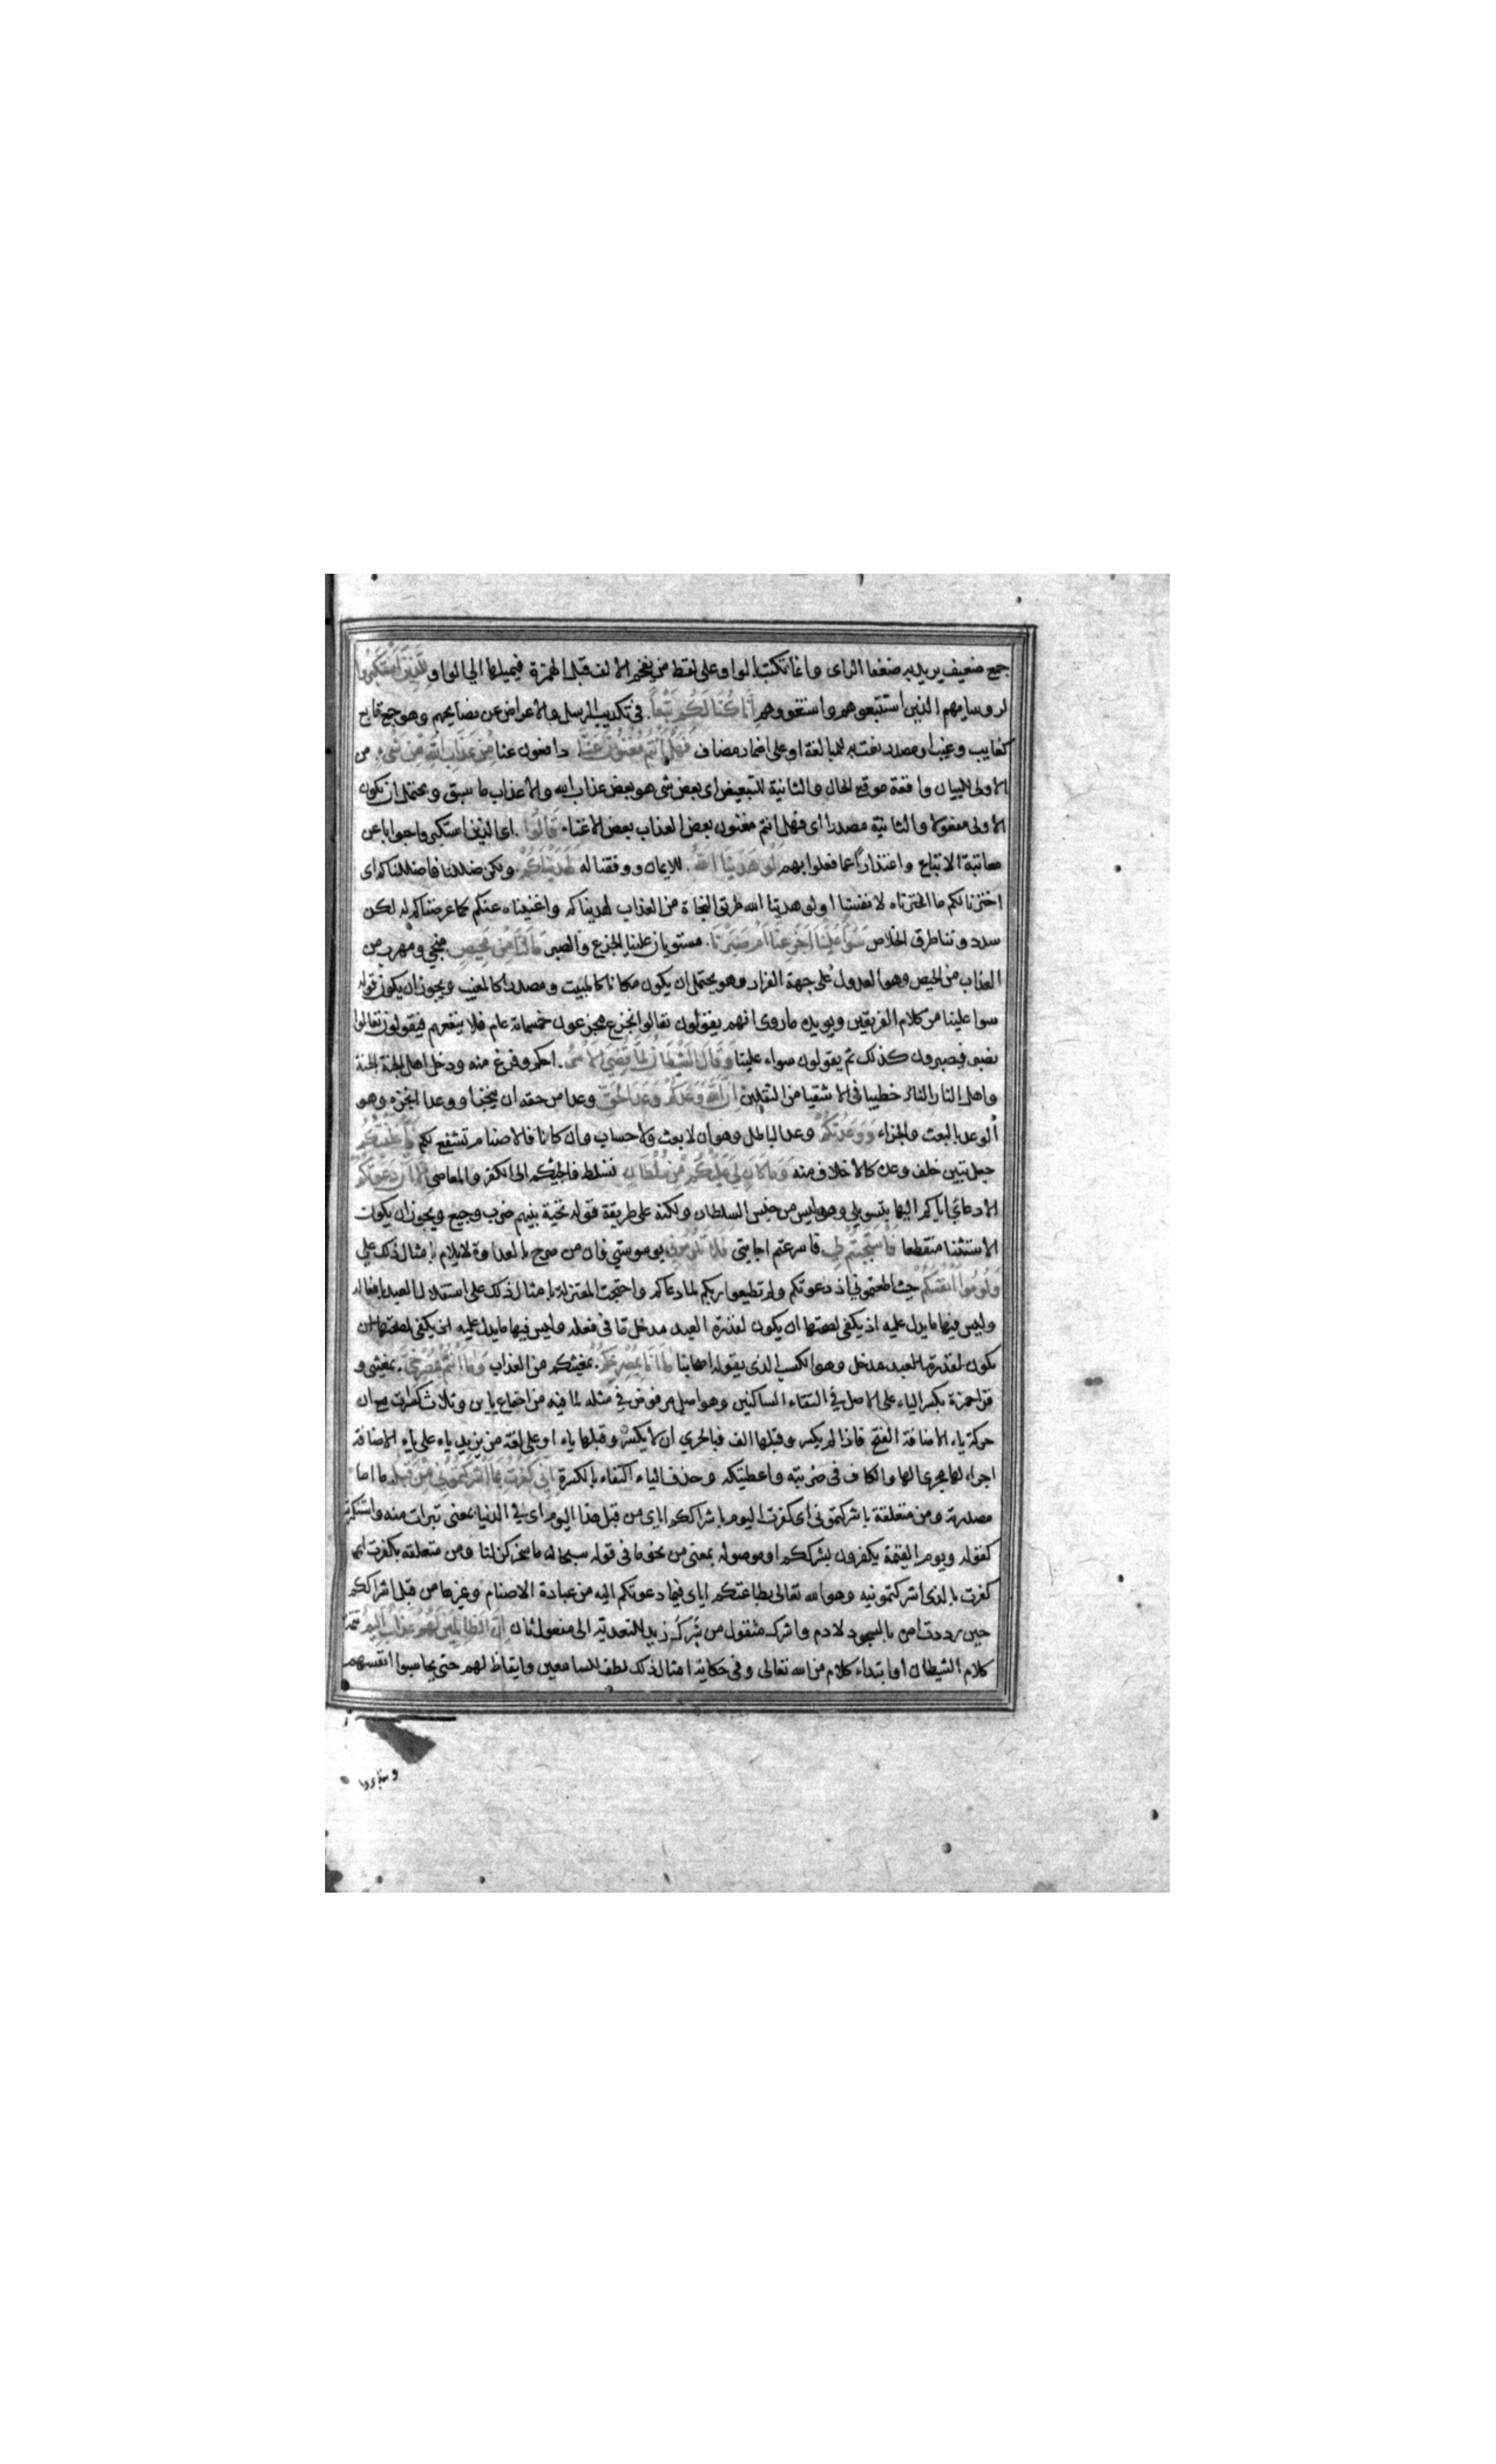 جمع ضعيف يريد به ضعفا الراى وانما تكتب بالواو على لفظ من يفخم الالف قبل الهمزة فيميلها الى الواو لِلَّذِينَ اسْتَكْبَرُوا
لروسايهم الذين استتبعوهم واستغووهم إِنَّا كُنَّا لَكُمْ تَبَعاً. فى تكذيب الرسل والاعراض عن نصايحهم وهو جمع تابع
كغايب وغيب او مصدر نعت به للمبالغة او على اضمار مضاف فَهَلْ أَنْتُمْ مُغْنُونَ عَنَّا دافعون عنا مِنْ عَذَابِ اللهِ مِنْ شَىْءٍ. من
الاولى للبيان واقعة موقع الحال والثانية للتبعيض اى بعض شى هو بعض عذاب الله والاعذاب ما سبق ويحتمل ان تكون
الاولى مفعولا والثانية مصدرا اى فهل انتم مغنون بعض العذاب بعض الاغناء قَالُوا. اى الذين استكبروا جوابا عن
معاتبة الاتباع واعتذاراً عما فعلوا بهم لَوْ هَدَينَا اللهُ. للايمان ووفقنا له لَهَدَيْنَاكُمْ. ولكن ضللنا فاضللناكم اى
اخترنا لكم ما اخترناه لانفسنا اولو هدينا الله طريق النجاة من العذاب لهديناكم واغنيناه عنكم كما عرضناكم له لكن
سدد وننا طرق الخلاص سَوَآءٌ عَلَيْنَا أَجَزِعْنَا أَمْ صَبَرْنَا. مستويان علينا الجزع والصبر مَا لَنَا مِنْ مَحِيصٍ منجى ومهرب من
العذاب من الحيص وهو العدول على جهة الفرار وهو يحتمل ان يكون مكانا كالمبيت ومصدرا كالمغيب ويجوز ان يكون قوله
سوا علينا من كلام الفريقين ويويده ماروى انهم يقولون تعالوا نجزع فيجزعون خمسماية عام فلا ينفعهم فيقولون تعالوا
نصبر فيصبرون كذلك ثم يقولون سواء علينا وَقَالَ الشَّيْطَانُ لَمَّا قُضِىَ الأَمْرُ. احكم وفرغ منه ودخل اهل الجنة الجنة
واهل النار النار خطيبا فى الاشقيا من الثقلين إِنَّ اللهَ وَعَدَكُمْ وَعْدَ الْحَقِّ وعدا من حقه ان ينجز او وعدا انجزه وهو
الوعد بالبعث والجزاء وَوَعَدْتُكُمْ وعد الباطل وهو ان لا بعث ولا حساب وان كانا فالاصنام تشفع لكم فَأَخْلَفْتُكُمْ
جعل تبين خلف وعده كالاخلاف منه وَمَا كَانَ لِىَ عَلَيْكُمْ مِنْ سُلْطَانٍ تسلط فالجيكم الى الكفر والمعاصى إِلَّا أَنْ دَعَوْتُكُمْ
الا دعائى اياكم اليها بتسويلى وهو ليس من جنس السلطان ولكنه على طريقة قوله تحية بينهم ضرب وجيع ويجوز ان يكون
الاستثنا منقطعا فَاسْتَجَبْتُمْ لِى قاسرعتم اجابتى فَلَا تَلُومُونِى بوسوستى فان من صرح بالعداوة لايلام بامثال ذلك على
وَلُومُوا أَنْفُسَكُمْ حيث اطعتمونى اذ دعوتكم ولم تطيعوا ربكم لما دعاكم واحتجت المعتزلة بامثال ذلك على استقلال العبد بافعاله
وليس فيها ما يدل عليه اذ يكفى لصحتها ان يكون لقدرة العبد مدخل ما فى فعله وليس فيها ما يدل عليه اذ يكفى لصحتها ان
يكون لقدرة العبد مدخل وهو الكسب الذى يقوله اصحابنا مَا أَنَا بِمُصْرِخِكُمْ. بمغيثكم من العذاب وَمَا أَنْتُمْ بِمُصْرِخِىَّ. بمغيثى و
قرا حمزة بكسر الياء على الاصل فى التقاء الساكنين وهو اصل مرفوض فى مثله لما فيه من اجتماع ياين وثلاث كسرات مع ان
حركة ياء الاضافة الفتح فاذا لم يكسر وقبلها الف فبالحرى ان لا يكسر وقبلها ياء او على لغة من يزيد ياء على ياء الاضافة
اجراء لها مجرى الها والكاف فى ضربته واعطيتكه وحذف الياء اكتفاء بالكسرة إِنِّى كَفَرْتُ بِمَا أَشْرَكْتُمُونِى مِنْ قَبْلُ ما اما
مصدرية ومن متعلقة باشركتمونى اى كفرت اليوم باشراككم اياى من قبل هذا اليوم اى فى الدنيا بمعنى تبرات منه واستنكرته
كقوله ويوم القيمة يكفرون بشرككم او موصولة بمعنى من نحو ما فى قوله سبحان ما سخركن لنا ومن متعلقه بكفرت اى
كفرت بالذى اشركتمونيه وهو الله تعالى بطاعتكم اياى فيما دعوتكم اليه من عبادة الاصنام وغيرها من قبل اشراككم
حين رددت امره بالسجود لادم واشرك منقول من شَرَكَ زيد للتعدية الى مفعول ثان إِنَّ الظَّالِمِينَ لَهُمْ عَذَابٌ أَلِيمٌ تتمة
كلام الشيطان او ابتداء كلام من الله تعالى وفى حكاية امثال ذلك لطف للسامعين وايقاظ لهم حتى يحاسبوا انفسهم